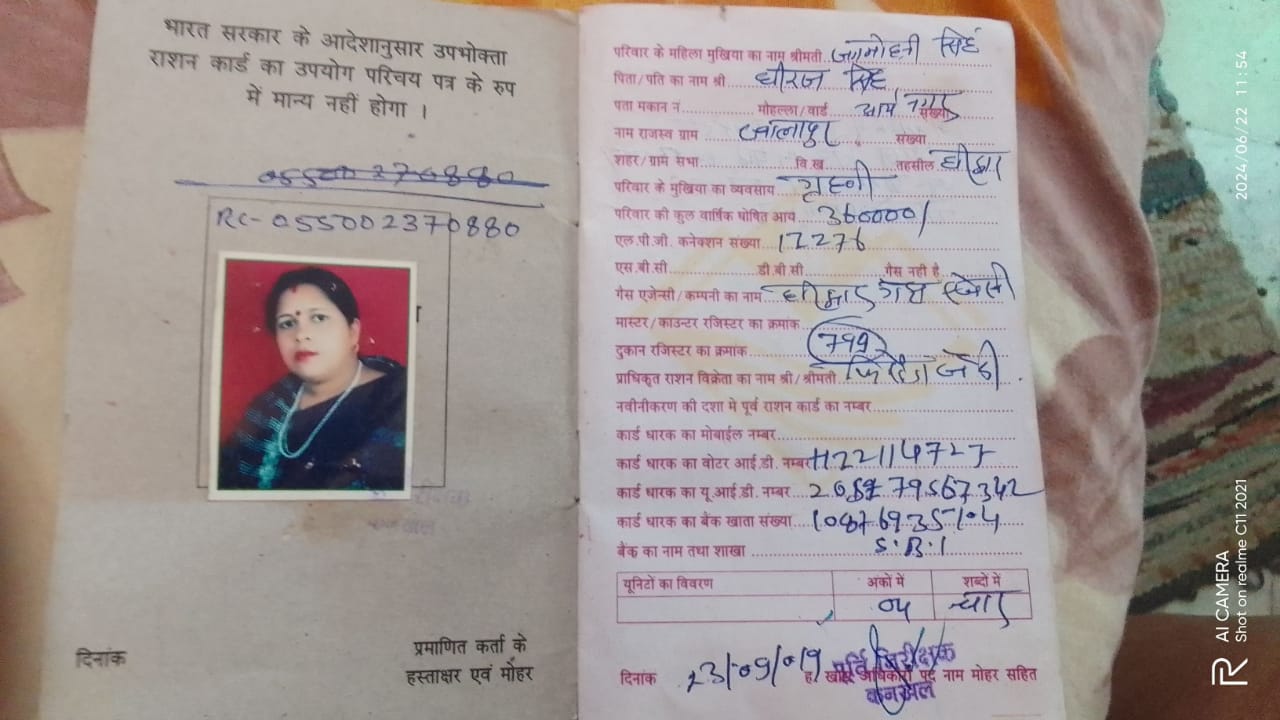 भारत सरकार के आदेशानुसार उपभोक्ता
राशन कार्ड का उपयोग परिचय पत्र के रुप
में मान्य नहीं होगा ।
RC-055002370880
दिनांक
प्रमाणित कर्ता के
हस्ताक्षर एवं मौहर
परिवार के महिला मुखिया का नाम श्रीमती सिंह
पिता/पति का नाम श्री धीरज सिंह
पता मकान न. मोहल्ला/वार्ड आर्य नगर संख्या
नाम राजस्व ग्राम ज्वालापुर संख्या
शहर/ग्राम सभा वि.ख. तहसील हरिद्वार
परिवार के मुखिया का व्यवसाय गृहणी
परिवार की कुल वार्षिक घोषित आय 360000/
एल.पी.जी. कनेक्शन संख्या 17276
एस.बी.सी. डी.बी.सी. गैस नही है
गैस एजेन्सी/कम्पनी का नाम हरिद्वार गैस एजेंसी
मास्टर/काउन्टर रजिस्टर का क्रमांक
दुकान रजिस्टर का क्रमांक 799
प्राधिकृत राशन विक्रेता का नाम श्री/श्रीमती
नवीनीकरण की दशा मे पूर्व राशन कार्ड का नम्बर
कार्ड धारक का मोबाईल नम्बर
कार्ड धारक का वोटर आई.डी. नम्बर
कार्ड धारक का यू.आई.डी. नम्बर
कार्ड धारक का बैंक खाता संख्या
बैंक का नाम तथा शाखा S.B.I
यूनिटों का विवरण अंकों में शब्दों में
04 चार
पूर्ति निरीक्षक
दिनांक 23/09/019 ह. खाद्य अधिकारी पद नाम मोहर सहित
कनखल
2024/06/22 11:54
AI CAMERA
Shot on realme C11 2021